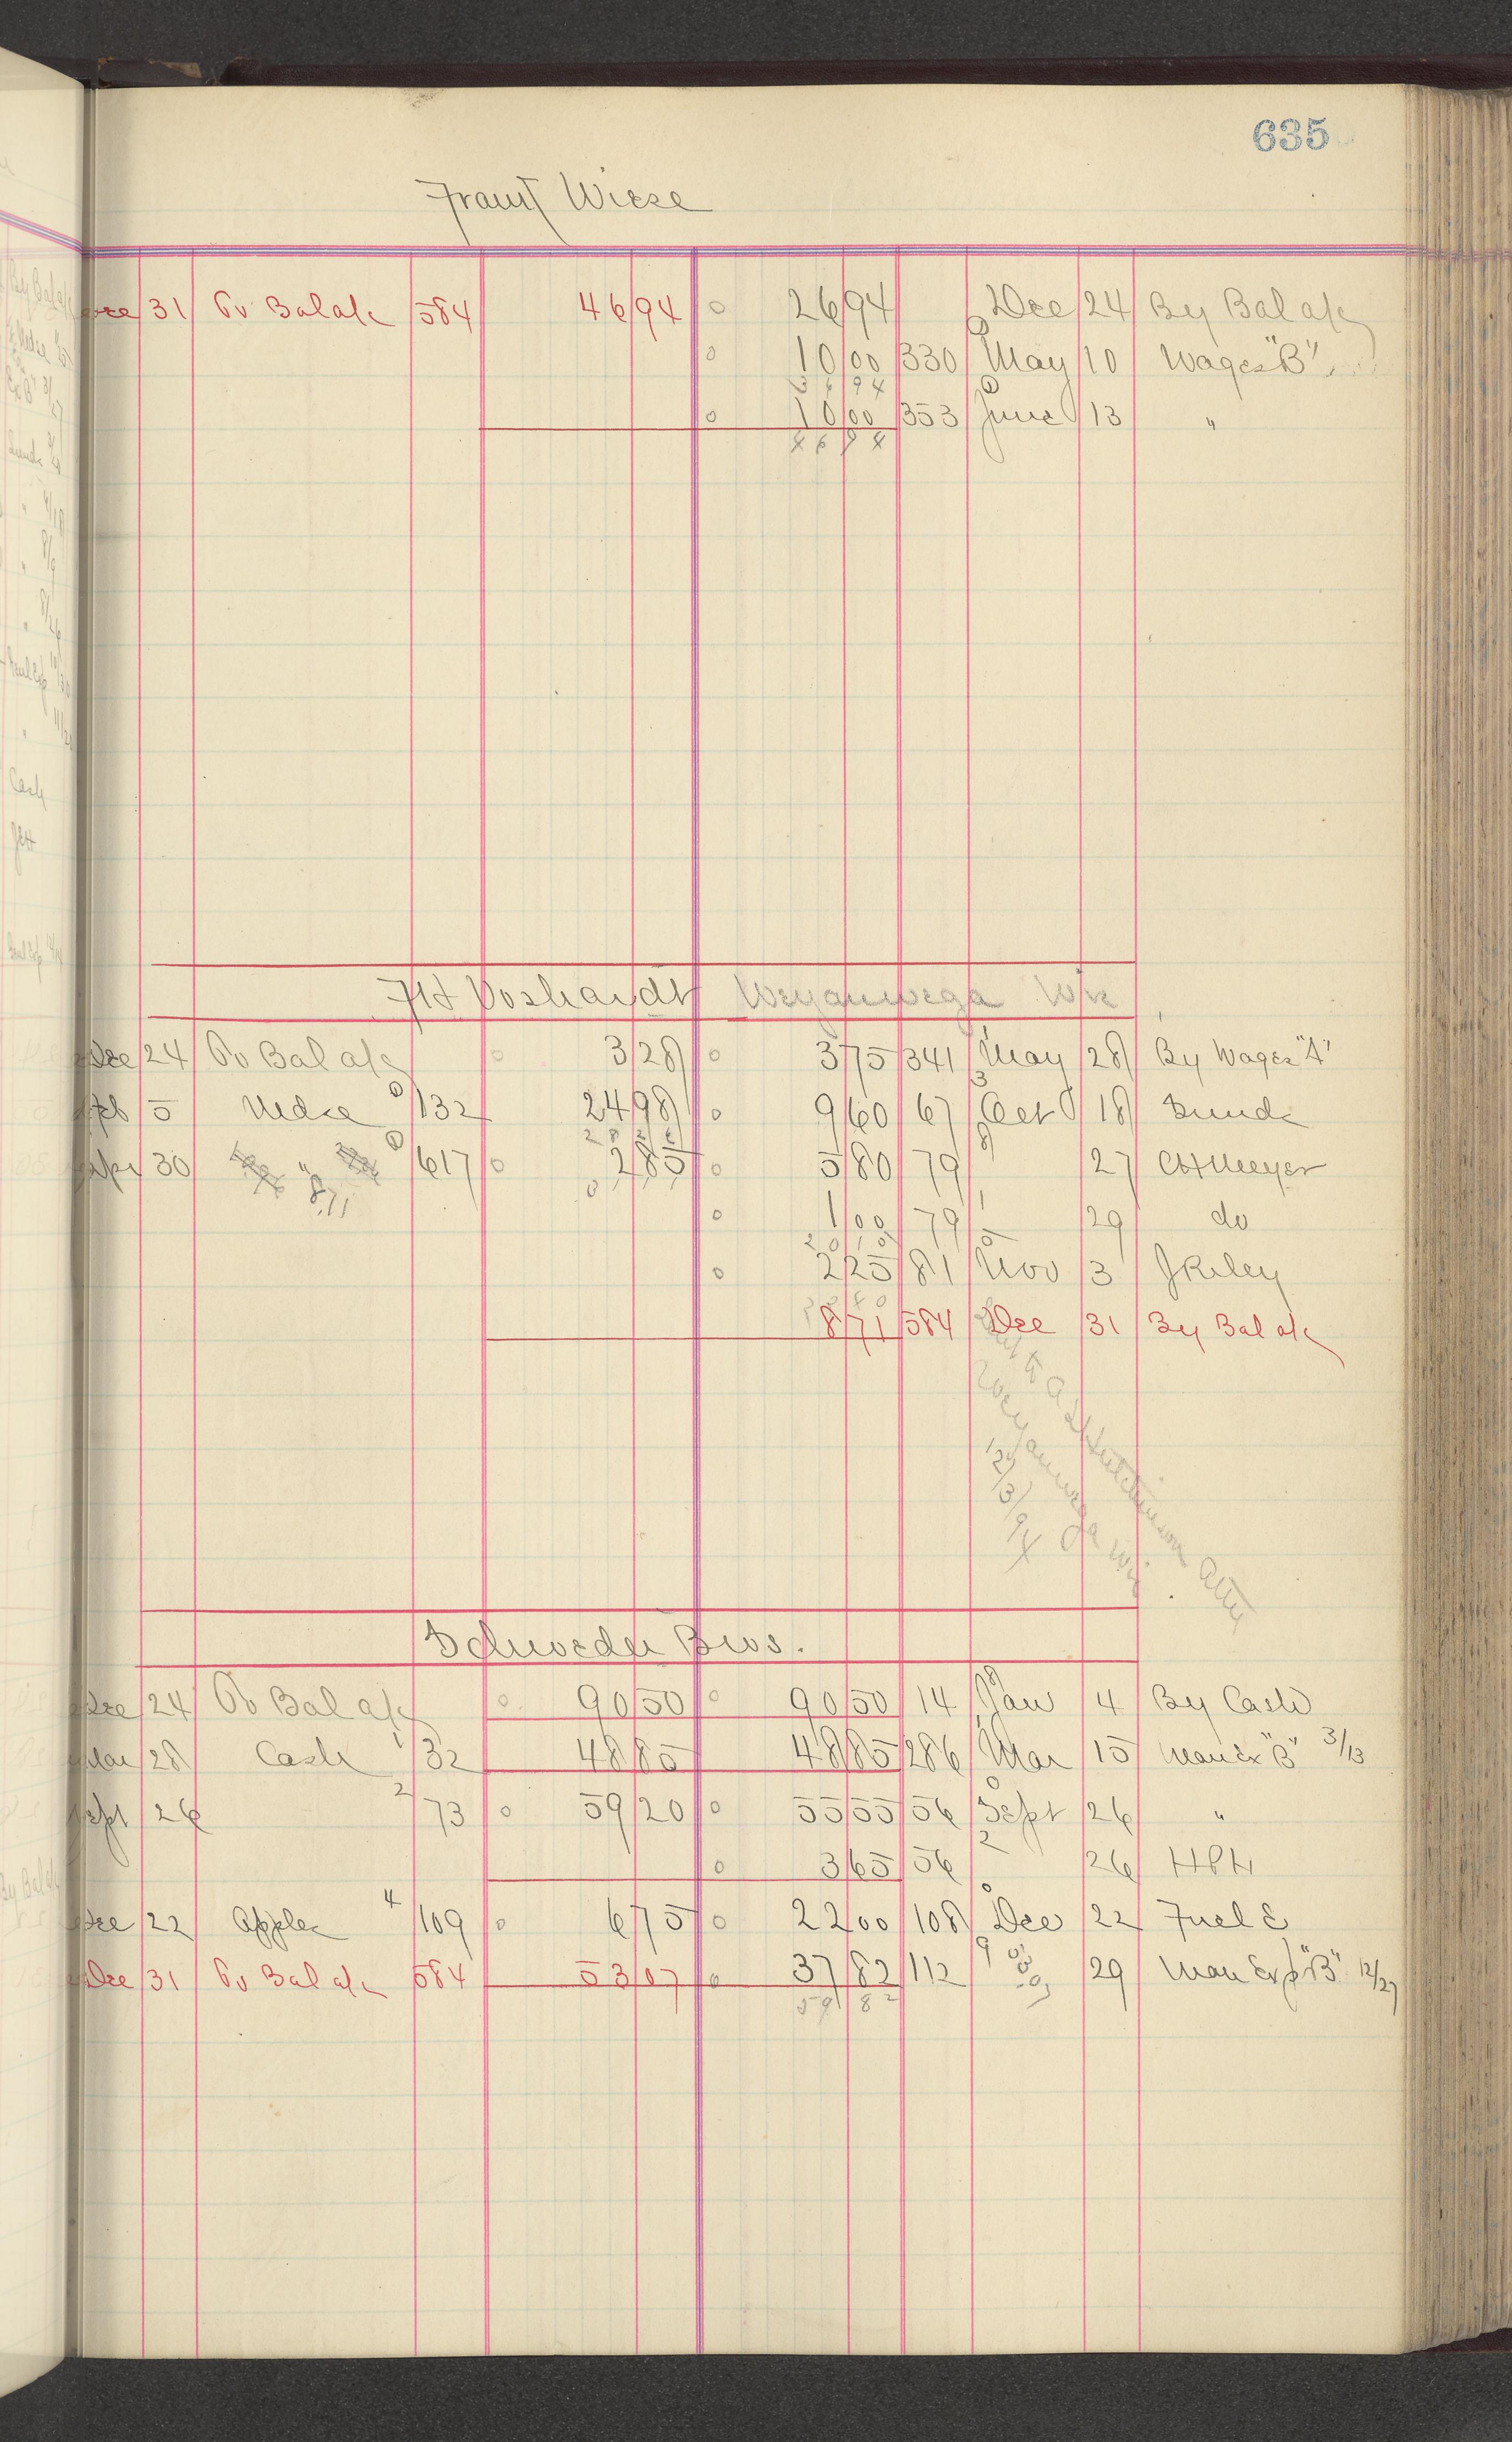 635
Wiese
Dec 31 To Bal a/c 584 46 94 26 94 Dec 24 By Bal a/c
10 00 330 May 10 Wages "B"
36 94
10 00 353 June 13 "
46 94
Voshardt Weyauwega Wis
Dec 24 To Bal a/c 3 28 3 75 341 May 28 By Wages "A"
Feb 5 Mdse 132 24 98 9 60 67 Oct 18 Sunds
28 26
Apr 30 " 617 2 85 5 80 79 27 CH Meyer
8.71
1 00 79 29 do
20 15
2 25 81 Nov 3 J Riley
22 40
8 71 584 Dec 31 By Bal a/c
Hutchinson Atty
Weyauwega Wis
12/3/94
Schroeder Bros.
Dec 24 To Bal a/c 90 50 90 50 14 Jan 4 By Cash
Mar 28 Cash 32 48 85 48 85 286 Mar 15 Man Ex "B" 3/13
Sept 26 73 59 20 55 55 56 Sept 26 "
3 65 56 26 HPH
Dec 22 Apples 109 6 75 22 00 108 Dec 22 Fuel E
Dec 31 To Bal a/c 584 53 07 37 82 112 29 Man Exp "B" 12/27
59 82